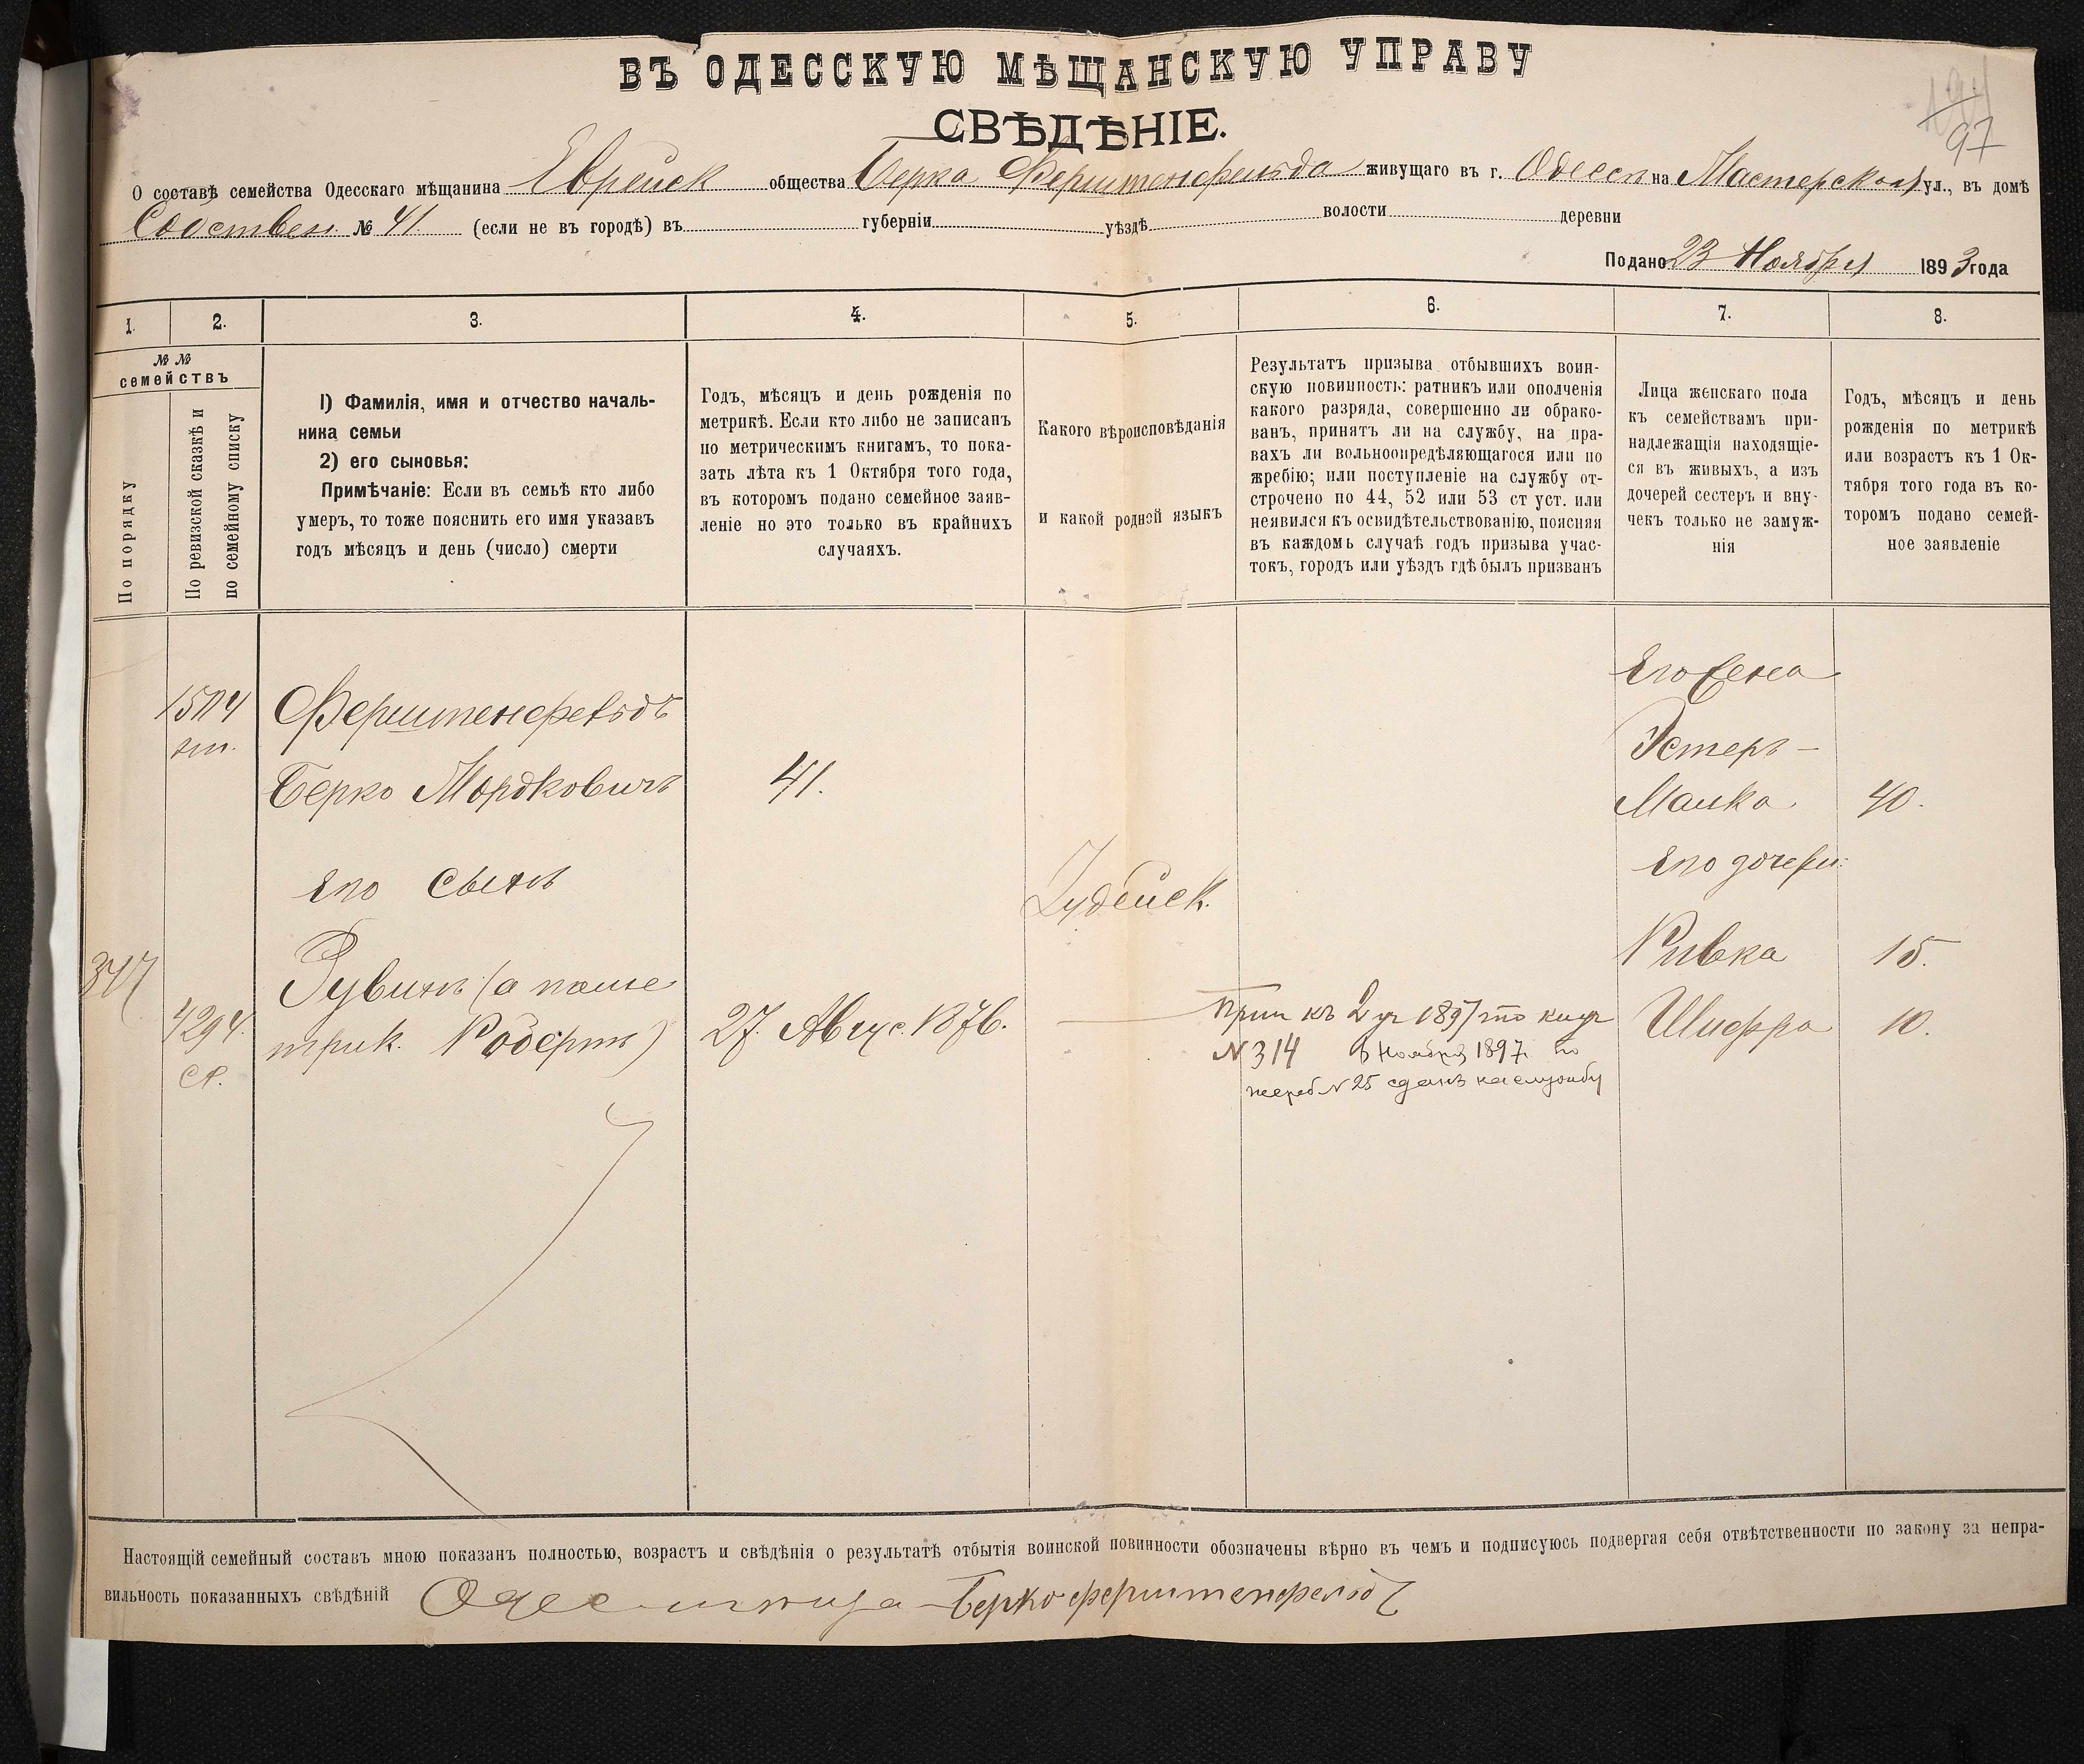 ВЪ ОДЕССКУЮ МѢЩАНСКУЮ УПРАВУ
СВѢДѢНІЕ.
97
О составѣ семейства Одесскаго мѣщанина Еврейск общества Берка Ферштенфельда живущаго въ г. Одессѣ на Мастерской ул., въ домѣ
Собствен. № 41 (если не въ городѣ) въ губерніи уѣздѣ волости деревни
Подано 23 Ноября 1893 года
1. 2. 3. 4. 5. 6. 7. 8.
№ №
семействъ
По порядку
По ревизской сказкѣ и
по семейному списку
1) Фамилія, имя и отчество началь-
ника семьи
2) его сыновья:
Примѣчаніе: Если въ семьѣ кто либо
умеръ, то тоже пояснить его имя указавъ
годъ мѣсяцъ и день (число) смерти
Годъ, мѣсяцъ и день рожденія по
метрикѣ. Если кто либо не записанъ
по метрическимъ книгамъ, то пока-
зать лѣта къ 1 Октября того года,
въ которомъ подано семейное заяв-
леніе но это только въ крайнихъ
случаяхъ.
Какого вѣроисповѣданія
и какой родной языкъ
Результатъ призыва отбывшихъ воин-
скую повинность: ратникъ или ополченія
какого разряда, совершенно ли обрако-
ванъ, принятъ ли на службу, на пра-
вахъ ли вольноопредѣляющагося или по
жребію; или поступленіе на службу от-
строчено по 44, 52 или 53 ст уст. или
неявился къ освидѣтельствованію, поясняя
въ каждомъ случаѣ годъ призыва учас-
токъ, городъ или уѣздъ гдѣ былъ призванъ
Лица женскаго пола
къ семействамъ при-
надлежащія находящіе-
ся въ живыхъ, а изъ
дочерей сестеръ и вну-
чекъ только не замуж-
нія
Годъ, мѣсяцъ и день
рожденія по метрикѣ
или возрастъ къ 1 Ок-
тября того года въ ко-
торомъ подано семей-
ное заявленіе
Ферштенфельдъ
Берко Мордковичъ
41.
Его сынъ
347
4294.
Рувинъ (а по ме
трик. Робертъ)
27. Авгус. 1876.
Іудейск.
Прин къ 2 уч 1897
N 314 Ноября 1897 по
жереб N 25 сданъ на службу
Его жена
Эстеръ -
Малка 40.
Его дочери:
Ривка 15.
Шифра 10.
Настоящій семейный составъ мною показанъ полностью, возрастъ и свѣдѣнія о результатѣ отбытія воинской повинности обозначены вѣрно въ чемъ и подписуюсь подвергая себя отвѣтственности по закону за непра-
вильность показанныхъ свѣдѣній Берко ферштенфельд